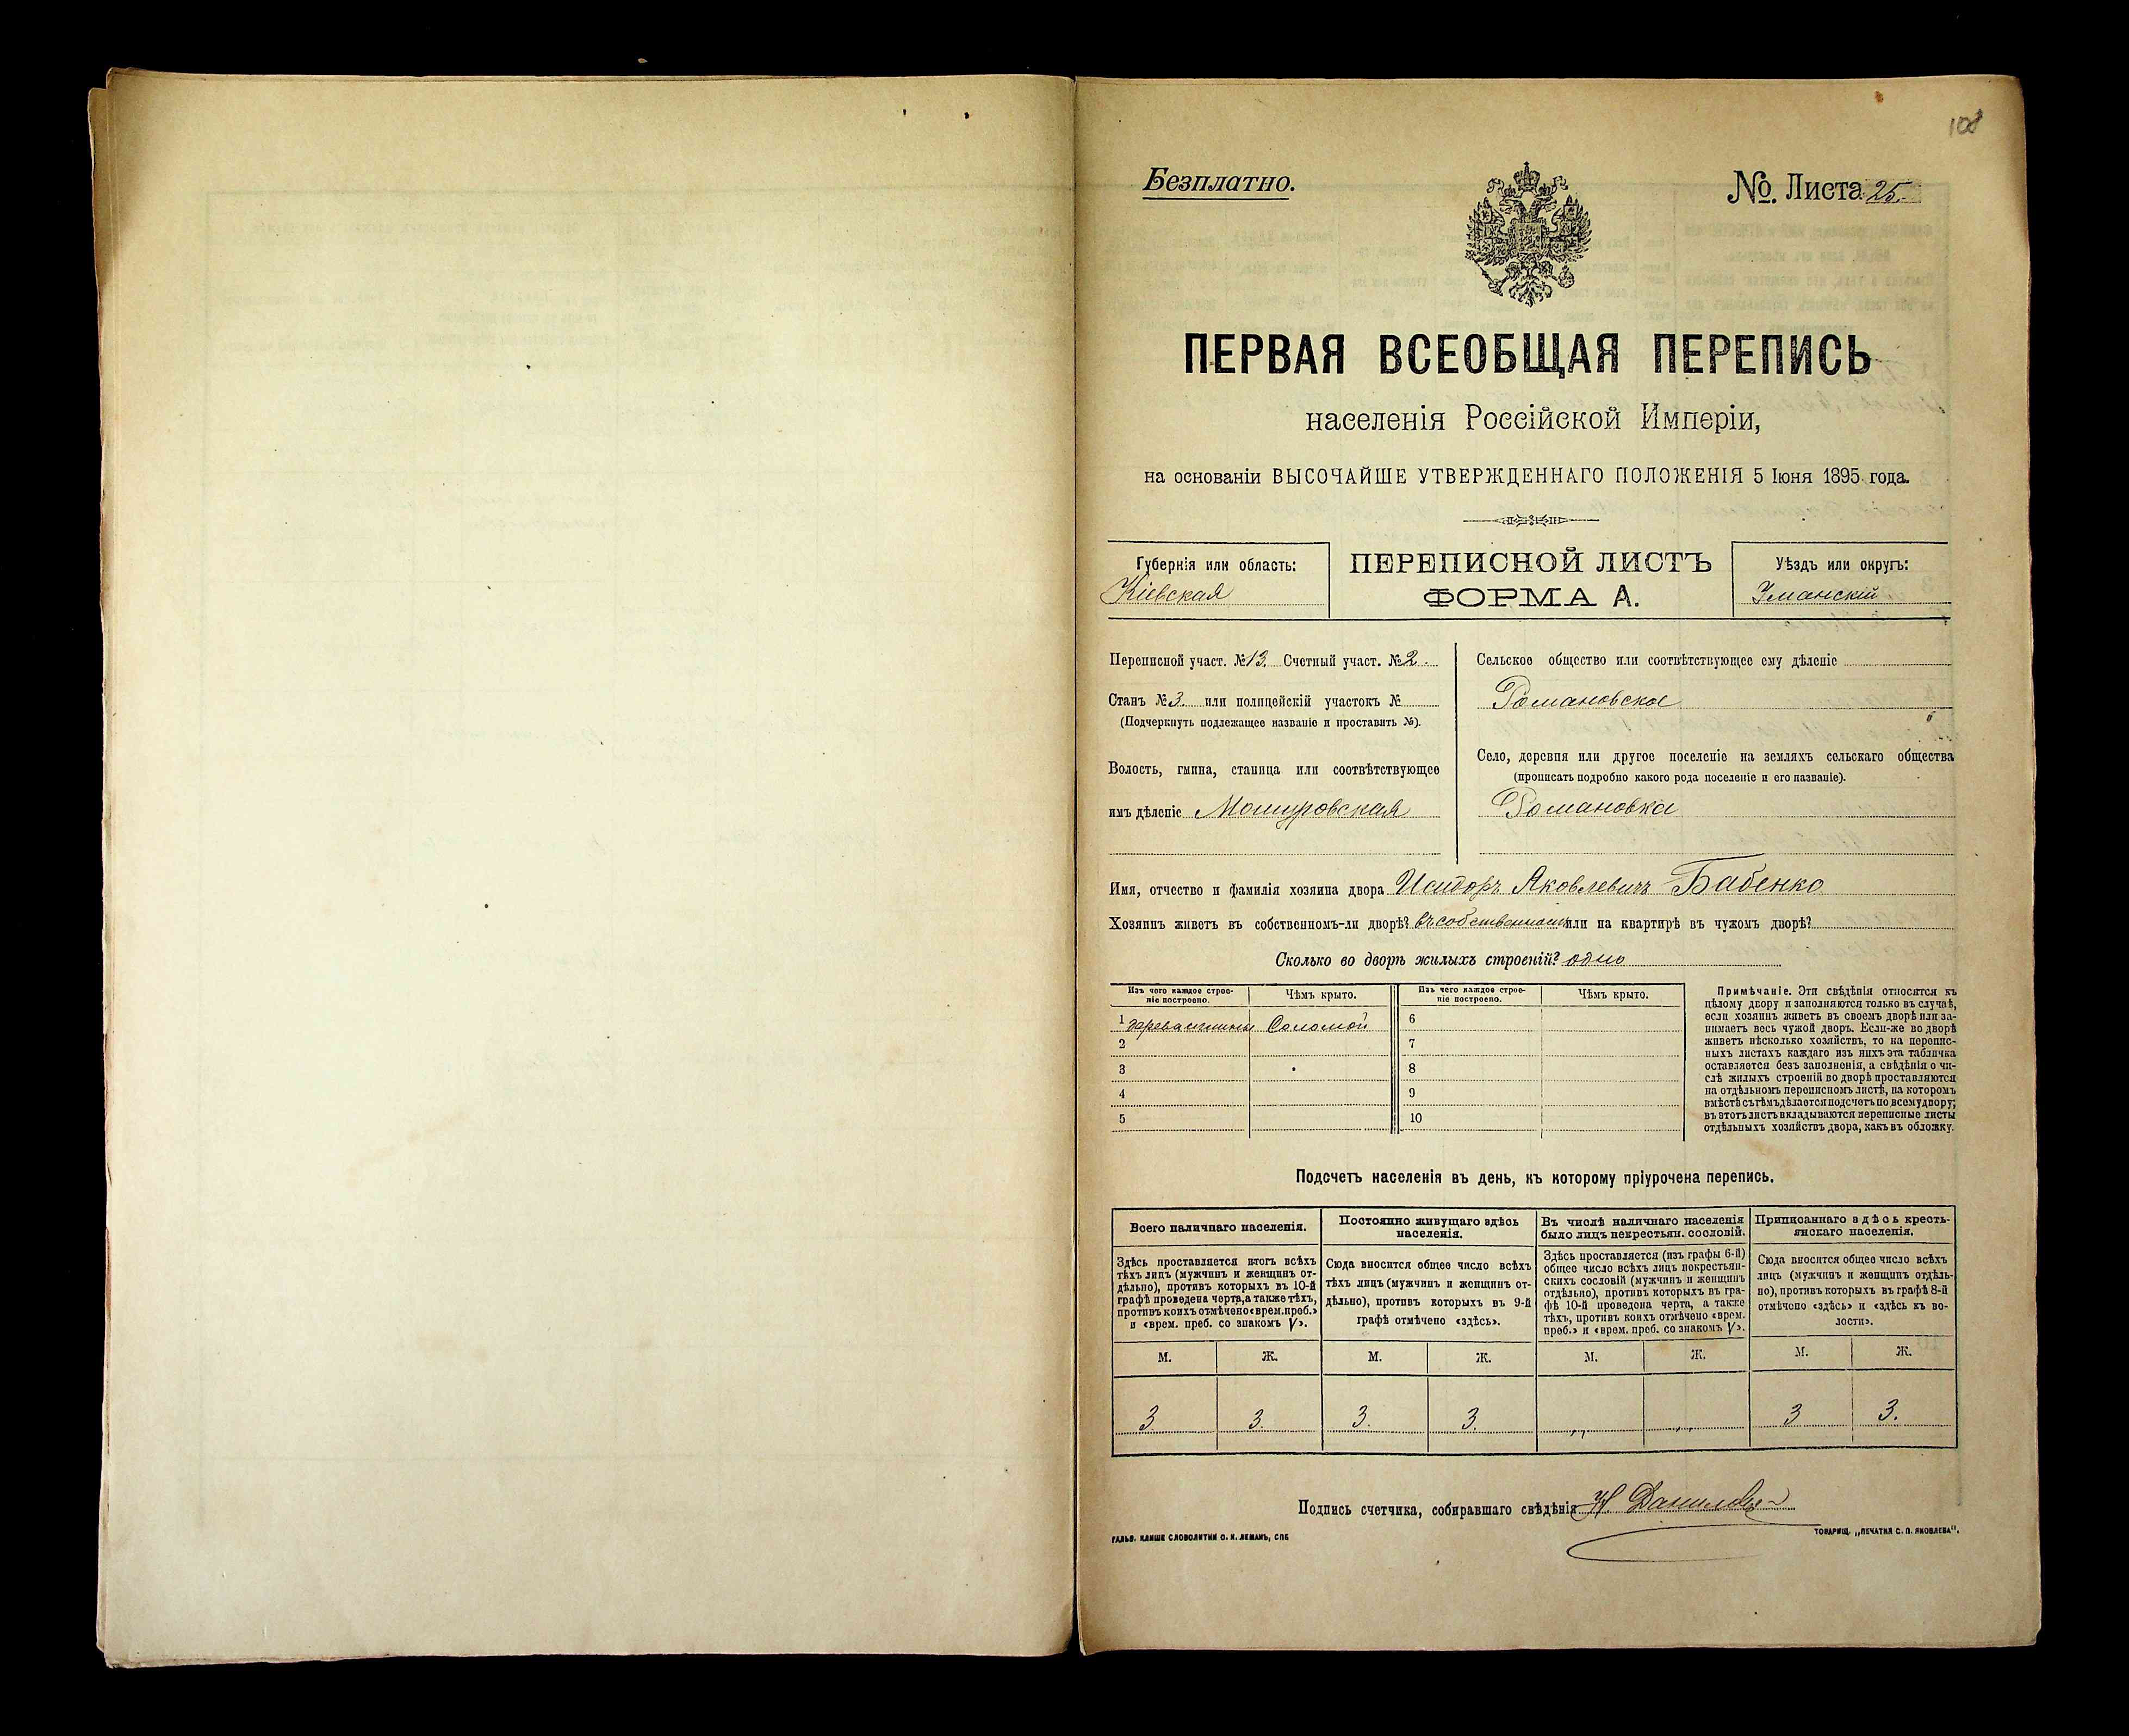 108
Безплатно.
№. Листа 25.
ПЕРВАЯ ВСЕОБЩАЯ ПЕРЕПИСЬ
населенія Россійской Имперіи,
на основаніи ВЫСОЧАЙШЕ УТВЕРЖДЕННАГО ПОЛОЖЕНІЯ 5 Іюня 1895 года.
Губернія или область:
Кіевская
ПЕРЕПИСНОЙ ЛИСТЪ
ФОРМА А.
Уѣздъ или округъ:
Уманскій
Переписной участ. № 13. Счетный участ. № 2.
Станъ № 3. или полицейскій участокъ №
(Подчеркнуть подлежащее названіе и проставить №).
Волость, гмина, станица или соотвѣтствующее
имъ дѣленіе Мошуровская
Сельское общество или соотвѣтствующее ему дѣленіе
Романовское
Село, деревня или другое поселеніе на земляхъ сельскаго общества
(прописать подробно какого рода поселеніе и его названіе).
Романовка
Имя, отчество и фамилія хозяина двора Исидоръ Яковлевичъ Бабенко
Хозяинъ живетъ въ собственномъ-ли дворѣ? въ собственномъ или на квартирѣ въ чужомъ дворѣ?
Сколько во дворѣ жилыхъ строеній? одно
Изъ чего каждое строе-
ніе построено.
Чѣмъ крыто.
Изъ чего каждое строе-
ніе построено.
Чѣмъ крыто.
1 Соломой
2
3
4
5
6
7
8
9
10
Примѣчаніе. Эти свѣдѣнія относятся къ
цѣлому двору и заполняются только въ случаѣ,
если хозяинъ живетъ въ своемъ дворѣ или за-
нимаетъ весь чужой дворъ. Если-же во дворѣ
живетъ нѣсколько хозяйствъ, то на перепис-
ныхъ листахъ каждаго изъ нихъ эта табличка
оставляется безъ заполненія, а свѣдѣнія о чи-
слѣ жилыхъ строеній во дворѣ проставляются
на отдѣльномъ переписномъ листѣ, на которомъ
вмѣстѣ съ тѣмъ дѣлается подсчетъ по всему двору;
въ этотъ листъ вкладываются переписные листы
отдѣльныхъ хозяйствъ двора, какъ въ обложку.
Подсчетъ населенія въ день, къ которому пріурочена перепись.
Всего наличнаго населенія.
Здѣсь проставляется итогъ всѣхъ
тѣхъ лицъ (мужчинъ и женщинъ от-
дѣльно), противъ которыхъ въ 10-й
графѣ проведена черта, а также тѣхъ,
противъ коихъ отмѣчено «врем. преб.»
и «врем. преб. со знакомъ V».
Постоянно живущаго здѣсь
населенія.
Сюда вносится общее число всѣхъ
тѣхъ лицъ (мужчинъ и женщинъ от-
дѣльно), противъ которыхъ въ 9-й
графѣ отмѣчено «здѣсь».
Въ числѣ наличнаго населенія
было лицъ некрестьян. сословій.
Здѣсь проставляется (изъ графы 6-й)
общее число всѣхъ лицъ некрестьян-
скихъ сословій (мужчинъ и женщинъ
отдѣльно), противъ которыхъ въ гра-
фѣ 10-й проведена черта, а также
тѣхъ, противъ коихъ отмѣчено «врем.
преб.» и «врем. преб. со знакомъ V».
Приписаннаго здѣсь кресть-
янскаго населенія.
Сюда вносится общее число всѣхъ
лицъ (мужчинъ и женщинъ отдѣль-
но), противъ которыхъ въ графѣ 8-й
отмѣчено «здѣсь» и «здѣсь къ во-
лости».
М. Ж. М. Ж. М. Ж. М. Ж.
3 3. 3. 3. „ „ 3 3.
Подпись счетчика, собиравшаго свѣдѣнія
ГАЛЬВ. КЛИШЕ СЛОВОЛИТНИ О. И. ЛЕМАНЪ, СПБ
ТОВАРИЩ. „ПЕЧАТНЯ С. П. ЯКОВЛЕВА".